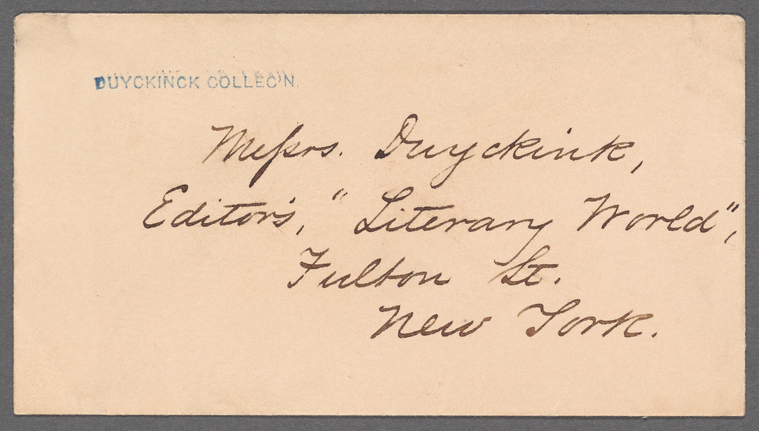 DUYCKINCK COLLEC'N.
Messrs. Duyckink,
Editor's, "Literary World",
Fulton St.
New York.